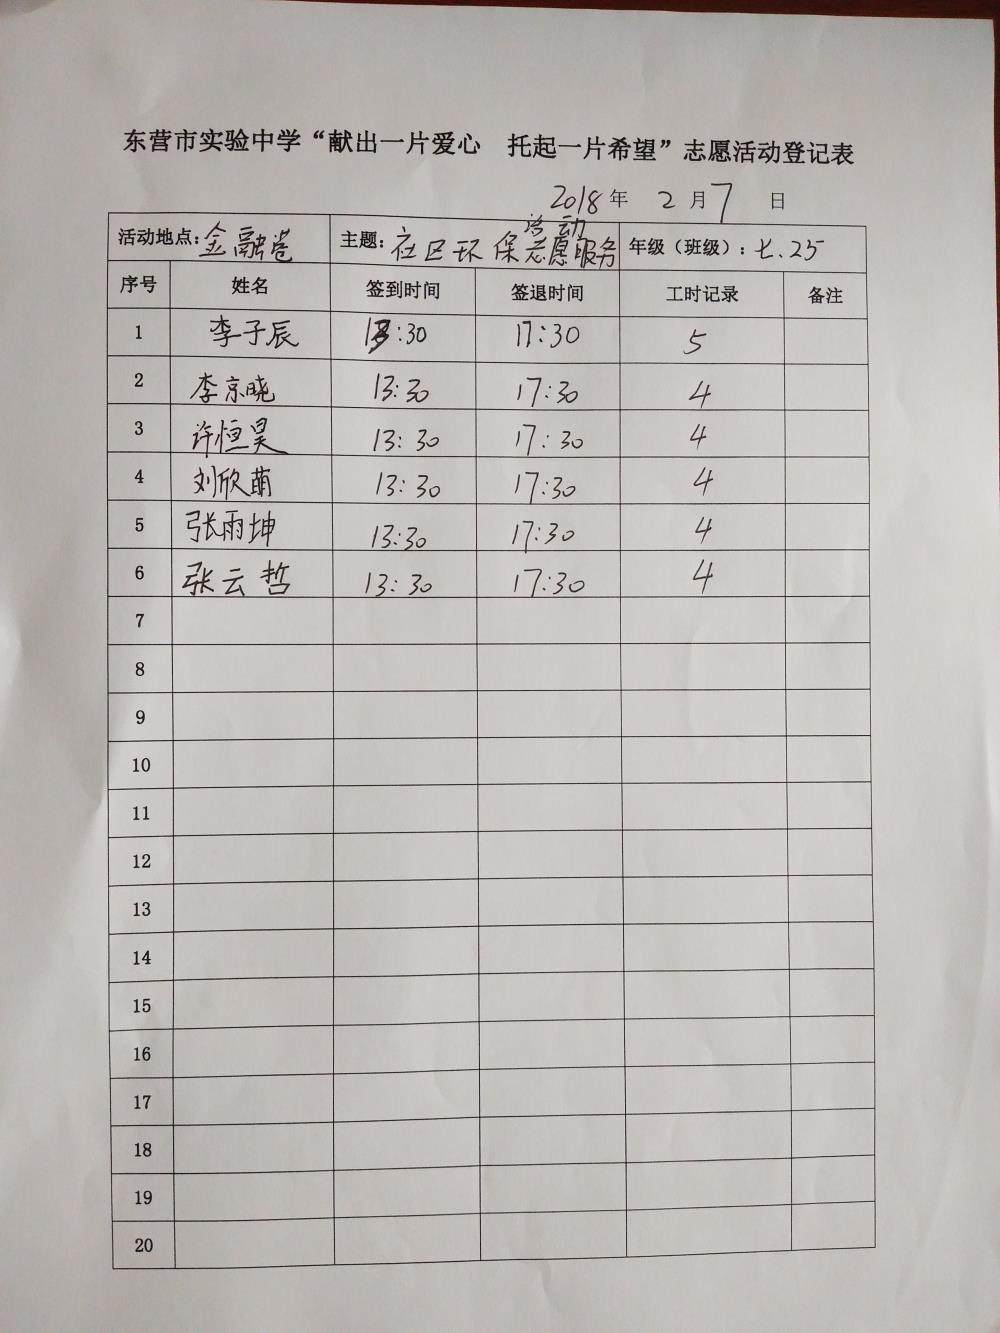 东营市实验中学“献出一片爱心 托起一片希望”志愿活动登记表
2018年 2月7日
活动地点:金融港 主题:社区环保志愿服务活动 年级(班级):七.25
序号 姓名 签到时间 签退时间 工时记录 备注
1 李子辰 13:30 17:30 5
2 李京晓 13:30 17:30 4
3 许恒昊 13:30 17:30 4
4 刘欣萌 13:30 17:30 4
5 张雨坤 13:30 17:30 4
6 张云哲 13:30 17:30 4
7
8
9
10
11
12
13
14
15
16
17
18
19
20